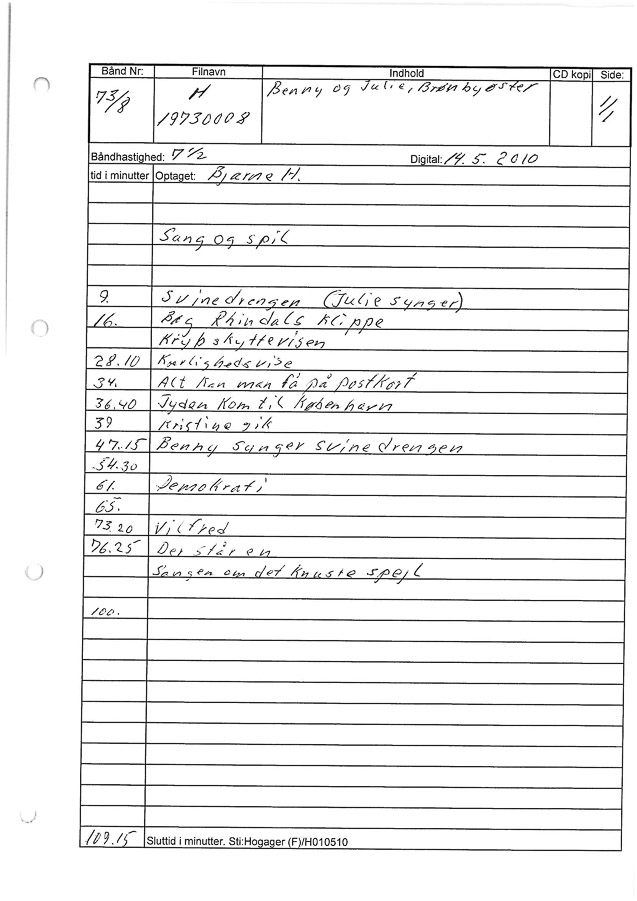 Bånd Nr: Filnavn Indhold CD kopi Side:
73/8 H Benny og Julie, Brønbyøster 1/1
19730008
Båndhastighed: 7 1/2 Digital: 14.5. 2010
tid i minutter Optaget: Bjarne H.
Sang og spil
9. Svinedrengen (Julie synger)
16. Bag Rhindals Klippe
Krybskyttevisen
28.10 Kærlighedsvise
34. Alt kan man få på postkort
36.40 Jyden kom til København
39 Kristine gik
47.15 Benny synger svinedrengen
54.30
61. Demokrati
65.
73.20 Vilfred
76.25 Der står en
Sangen om det knuste spejl
100.
109.15 Sluttid i minutter. Sti:Hogager (F)/H010510